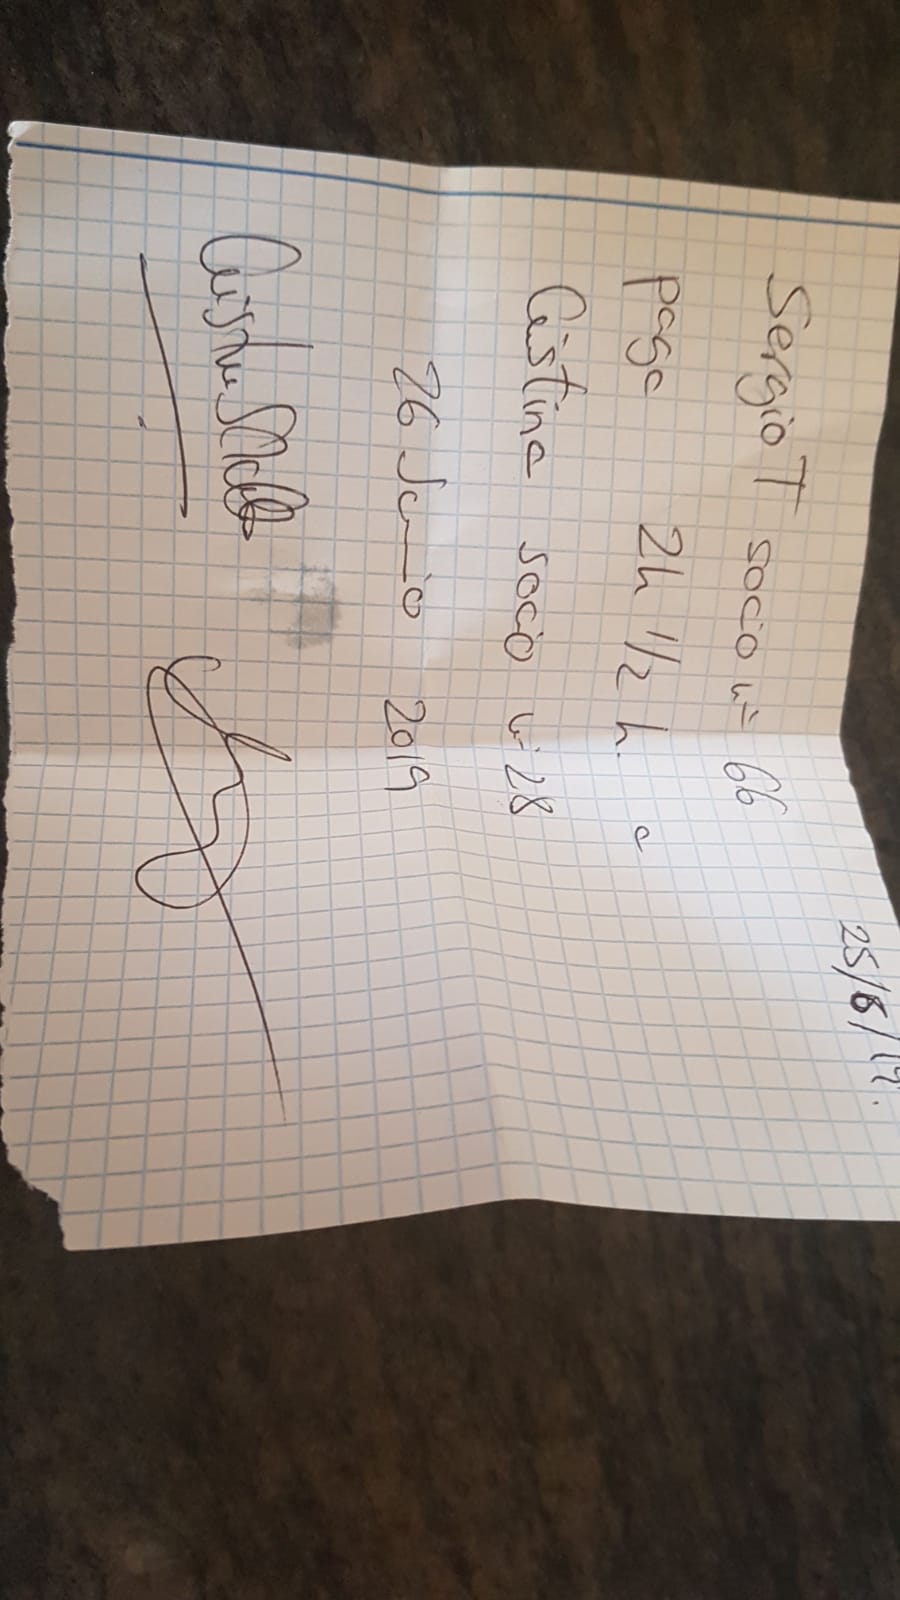 25/6/19.
Sergio T socio nº 66
pago 2h 1/2 h. a
Cristina socio nº 28
26 Junio 2019